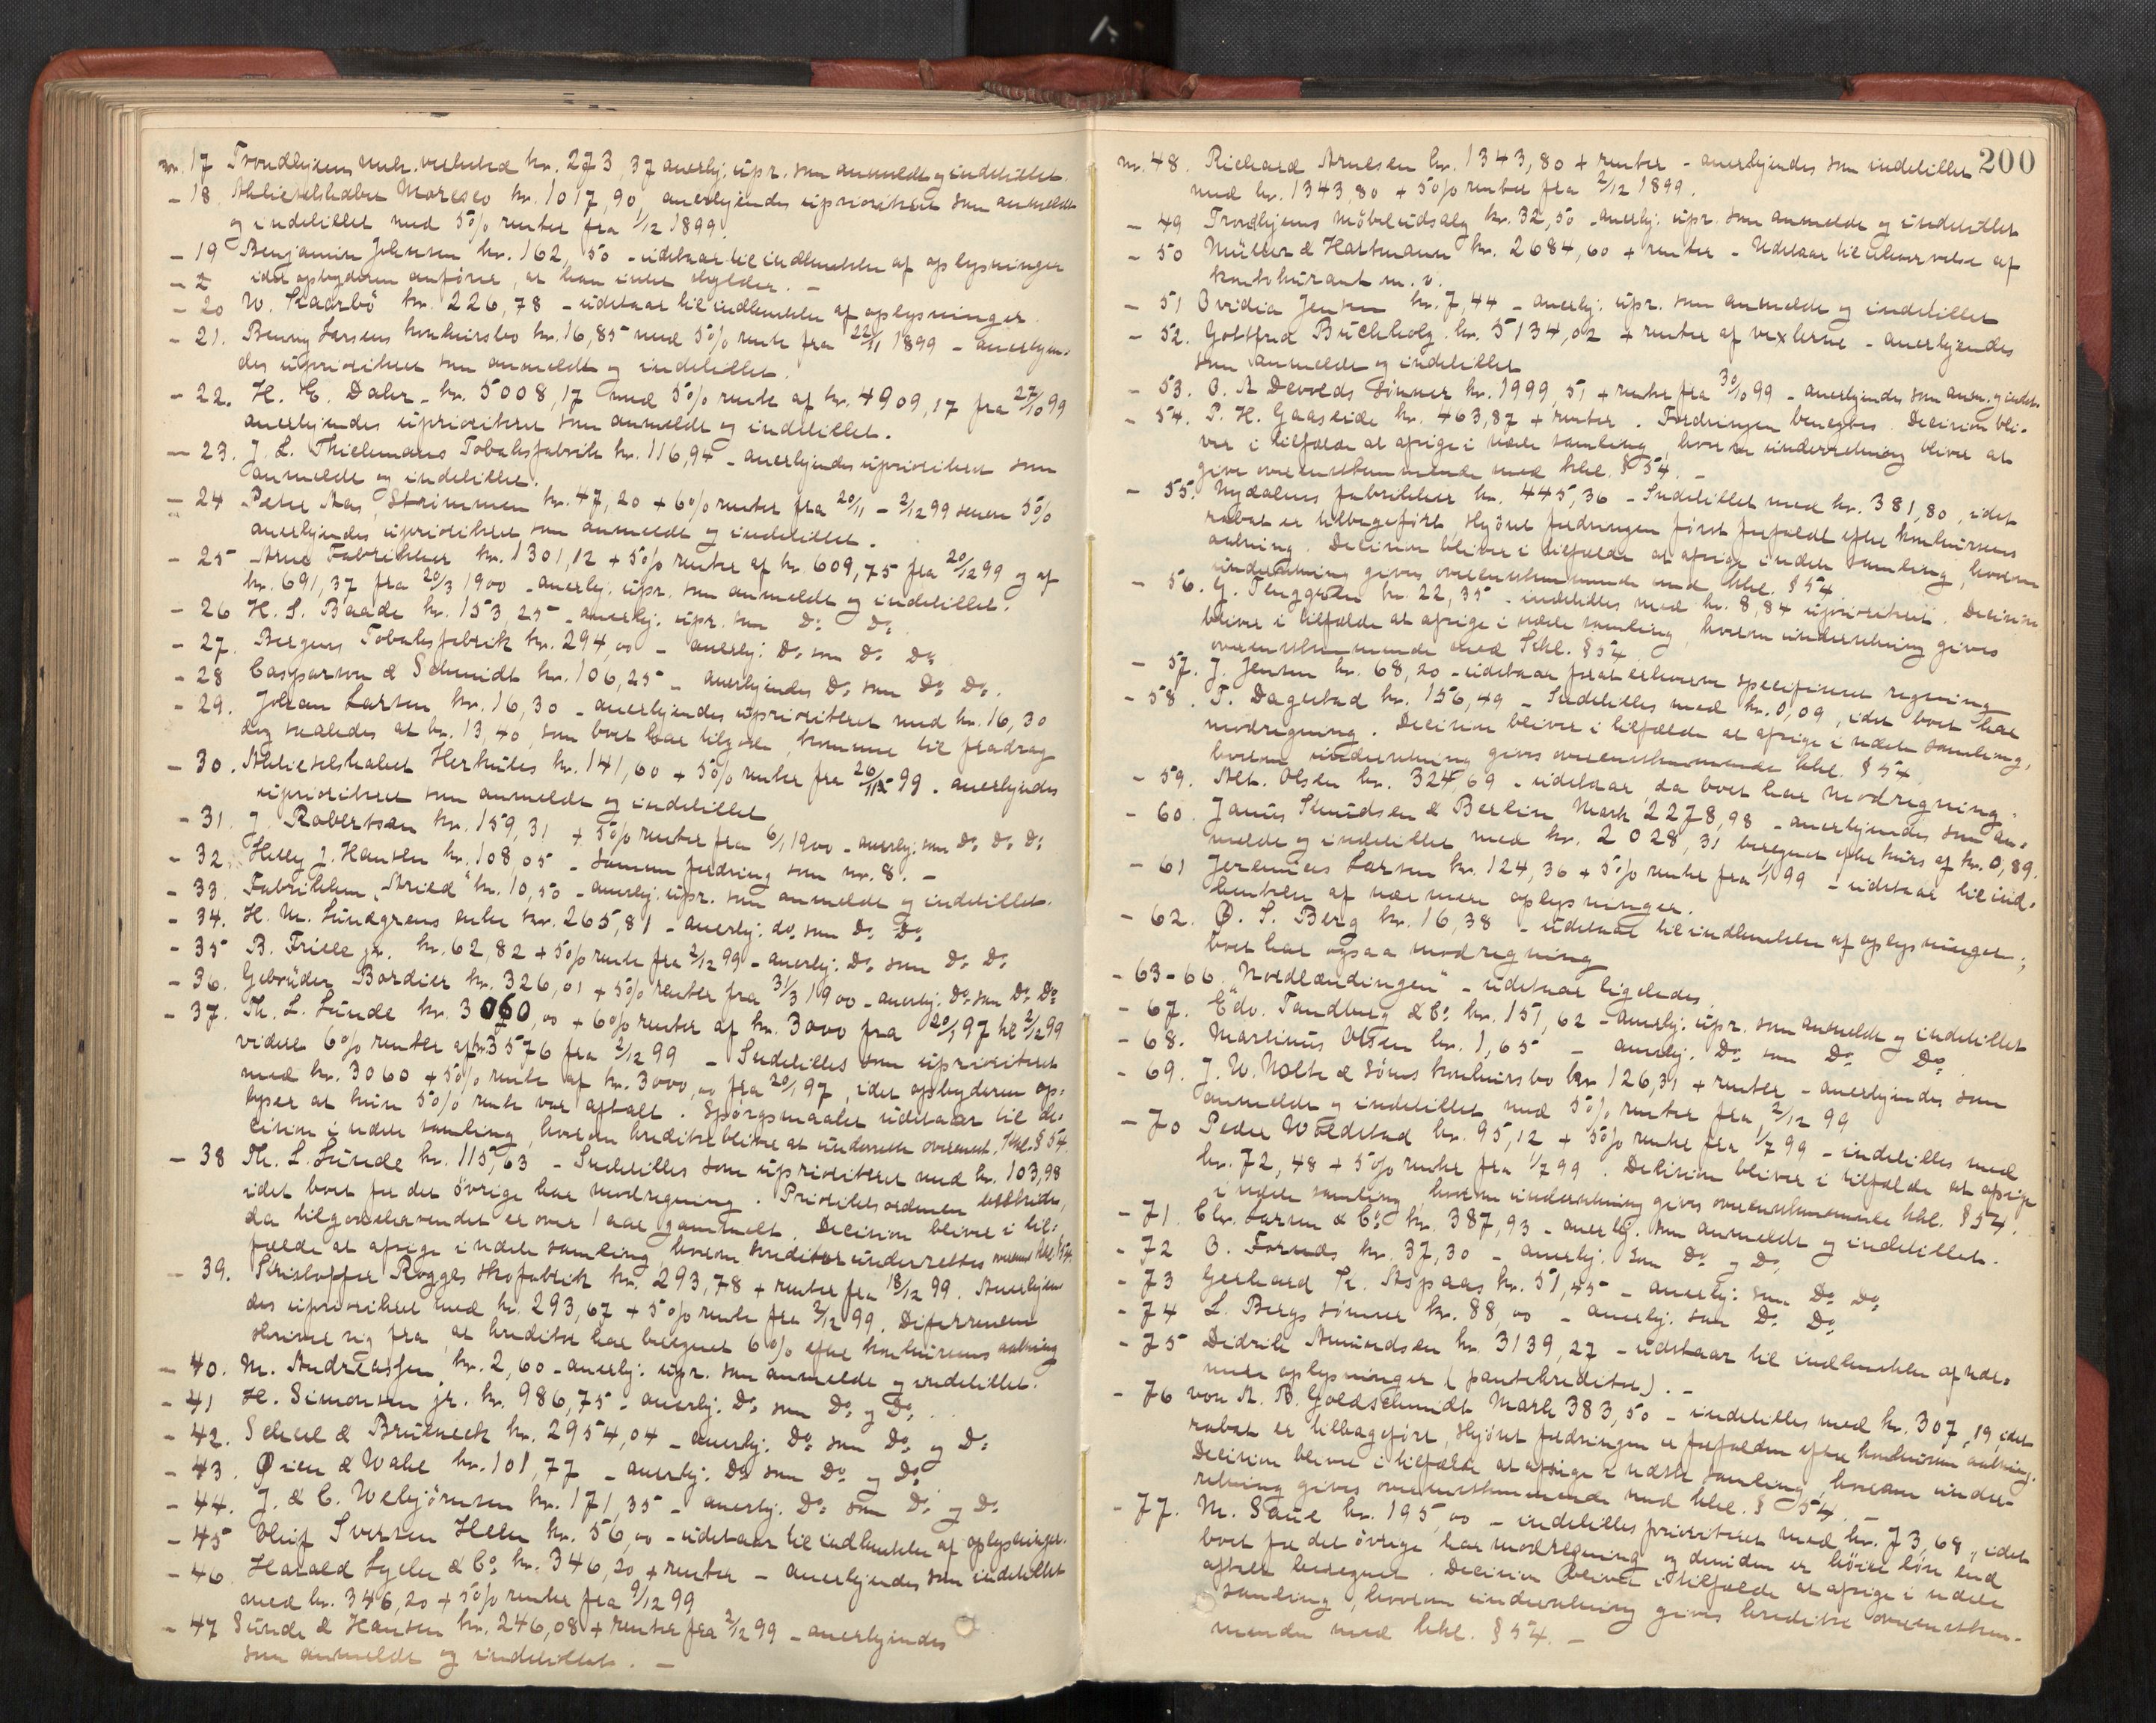 nr. 17 Trondhjems mek. verksted kr. 273,37 anerkj. upr. som anmeldt og indstillet.
- 18 Aktieselskabet Moresco kr. 1017,90, anerkjendes uprioritert som anmeldt
og indstillet med 5% renter fra 2/12 1899.
- 19 Benjamin Johnsen kr. 162,50 - udstaar til indhentelse af oplysninger
- 2 idet opbyderen anfører, at han intet skylder. -
- 20 W. Kaarbö kr. 226,78 - udstaar til indhentelse af oplysninger.
- 21. Benny Larsens konkursbo kr. 16,85 med 5% rente fra 22/11 1899 - anerkjen-
des uprioritert som anmeldt og indstillet.
- 22. H. C. Dahr - kr. 5008,17 med 5% rente af kr. 4909,17 fra 27/10 99
anerkjendes uprioritert som anmeldt og indstillet.
- 23. J. L. Thielemanns Tobaksfabrik kr. 116,94 - anerkjendes uprioritert som
anmeldt og indstillet.
- 24 Peter Aas, Strömmen kr. 47,20 + 6% renter fra 20/11 - 2/12 99 senere 5%
anerkjendes uprioritert som anmeldt og indstillet.
- 25 Arne Fabrikker kr. 1301,12 + 5% renter af kr. 609,75 fra 20/12 99 og af
kr. 691,37 fra 20/3 1900 - anerkj. upr. som anmeldt og indstillet.
- 26 H. S. Baade kr. 153,25 - anerkj. upr. som Do Do
- 27. Bergens Tobaksfabrik kr. 294,00 - anerkj. Do som Do Do
- 28 Casparson & Schmidt kr. 106,25 - anerkjendes Do som Do Do.
- 29. Johan Larsen kr. 16,30 - anerkjendes uprioritert med kr. 16,30
dog saaledes at kr. 13,40, som boet har tilgode, kommer til fradrag
- 30. Aktieselskabet Herkules kr. 141,60 + 5% renter fra 26/12 99. anerkjendes
uprioritert som anmeldt og indstillet
- 31. J. Robertson kr. 159,31 + 5% renter fra 6/1 1900 - anerkj. som Do Do Do
- 32. Helly J. Hansen kr. 108 05 - samme fordring som nr. 8. -
- 33. Fabrikken "Arild" kr. 10,50 - anerkj. upr. som anmeldt og indstillet.
- 34. H. M. Lundgrens enke kr. 265,81 - anerkj. do som Do Do
- 35 B. Friele jr. kr. 62,82 + 5% rente fra 2/12 99 - anerkj. Do som Do Do
- 36. Gebrüder Bordier kr. 326,01 + 5% renter fra 31/3 1900 - anerkj. Do som Do Do
- 37. Th. L. Lunde kr. 3060,00 + 6% renter af kr. 3000 fra 20/1 97 til 2/12 99
videre 6% renter af kr 3576 fra 2/12 99 - Indstilles som uprioritert
med kr. 3060 + 5% rente af kr. 3000,00 fra 20/1 97, idet opbyderen op-
lyser at kun 5% rente var aftalt. Spørgsmaalet udstaar til de-
cision i næste samling, hvorom kreditor bliver at underrette overenst. kkl. § 54.
- 38 Th. L. Lunde kr. 115,63 - Indstilles som uprioritert med kr. 103,98
idet boet for det øvrige har modregning. Prioritetsordenen bestrides,
da tilgodehavendet er over 1 aar gammelt. Decision bliver i til-
fælde at afsige i næste samling, hvorom kreditor underrettes overenst. kkl. § 54.
- 39. Kristoffer Rogges skofabrik kr. 293,78 + renter fra 18/12 99. Anerkjen-
des uprioritert med kr. 293,67 + 5% rente fra 2/12 99. Differensen
skriver sig fra, at kreditor har beregnet 6% efter konkursens aabning
- 40. M. Andreassen, kr. 2,60 - anerkj. upr. som anmeldt og indstillet.
- 41 H. Simonsen jr. kr. 986,75 - anerkj. Do som Do og Do.
- 42. Scheel & Brüneck kr. 2954,04 - anerkj. Do som Do og Do
- 43. Øien & Wahl kr. 101,77 - anerkj. Do som Do og Do
- 44. J. & C. Webjörnsen kr. 171,35 - anerkj. Do som Do og Do
- 45 Oluf Iversen Helen kr. 56,00 - udstaar til indhentelse af oplysninger.
- 46 Harald Lyche & Co kr. 346,20 + renter - anerkjendes som indstillet
med kr. 346,20 + 5% renter fra 2/12 99
- 47 Sunde & Hansen kr. 246,08 + renter fra 2/12 99 - anerkjendes
som anmeldt og indstillet. -
200
nr. 48. Richard Arnesen kr. 1343,80 + renter - anerkjendes som indstillet
med kr. 1343,80 + 5% renter fra 2/12 1899.
- 49 Trondhjems møbeludsalg kr. 32,50 - anerkj. upr. som anmeldt og indstillet
- 50 Müller & Hartmann kr. 2684,60 + renter - Udstaar til erhvervelse af
kontokurant m. v.
- 51 Ovidia Jensen kr. 7,44 - anerkj. upr. som anmeldt og indstillet
- 52. Gottfred Buchholz kr. 5134,02 + renter af vexlerne - anerkjendes
som anmeldt og indstillet
- 53. O. A. Devolds Sönner kr. 1999,51 + renter fra 30/10 99 - anerkjendes som anm. og indst.
- 54. P. H. Gaaseide kr. 463,87 + renter. Fordringen benegtes. Decision bli-
ver i tilfælde at afsige i næste samling, hvorom underretning bliver at
give overensstemmende med kkl. § 54. -
- 55. Nydalens fabrikker kr. 445,36 - Indstillet med kr. 381,80, idet
rabat er tilbageført skjönt fordringen först forfaldt efter konkursens
aabning. Decision bliver i tilfælde at afsige i næste samling, hvorom
underretning gives overensstemmende med kkl. § 54.
- 56. G. Flüggeden kr. 22,35 - indstilles med kr. 8,84 uprioritert. Decision
bliver i tilfælde at afsige i næste samling, hvorom underretning gives
overensstemmende med kkl. § 54.
- 57. J. Jensen kr. 68,20 - udstaar for at erhverve specificeret regning
- 58. T. Dagestad kr. 156,49 - Indstilles med kr. 0,09, idet boet har
modregning. Decision bliver i tilfælde at afsige i næste samling,
hvorom underretning gives overensstemmende kkl. § 54.
- 59. Alet. Olsen kr. 324,69 - udstaar, da boet har modregning.
- 60. Janus Knudsen & Berlin Mark 2278,98 - anerkjendes som an-
meldt og indstillet med kr. 2028,31 beregnet efter kurs af kr. 0,89.
- 61 Jeremias Larsen kr. 124,36 + 5% rente fra 1/1 99 - udstaar til ind-
hentelse af nærmere oplysninger.
- 62. O. S. Berg kr. 16,38 - udstaar til indhentelse af oplysninger;
boet har ogsaa modregning
- 63-66 "Nordlændingen" - udstaar ligeledes.
- 67. Edv. Tandberg & Co kr. 151,62 - anerkj. upr. som anmeldt og indstillet
- 68. Martinus Olsen kr. 1,65 - anerkj. Do som Do Do.
- 69. J. W. Nolte & Söns konkursbo kr 126,31 + renter - anerkjendes som
anmeldt og indstillet med 5% renter fra 2/12 99
- 70 Peder Woldstad kr. 95,12 + 5% rente fra 1/7 99 - indstilles med
kr. 72,48 + 5% rente fra 1/7 99. Decision bliver i tilfælde at afsige
i næste samling, hvorom underretning gives overensstemmende kkl. § 54.
- 71. Chr. Larsen & Co kr. 387,93 - anerkj. som anmeldt og indstillet.
- 72 O. Fornæs kr. 37,30 - anerkj. som Do og Do
- 73 Gerhard K. Aspaas kr. 51,45 - anerkj. som Do Do
- 74 L. Bergs sönner kr. 88,00 - anerkj. som Do Do
- 75 Didrik Amundsen kr. 3139,27 - udstaar til indhentelse af nær-
mere oplysninger (pantekreditor). -
- 76 von A. B. Goldschmidt Mark 383,50 - indstilles med kr. 307,19, idet
rabat er tilbageført, skjönt fordringen er forfalden efter konkursens aabning.
Decision bliver i tilfælde at afsige i næste samling, hvorom under-
retning gives overensstemmende med kkl. § 54. -
- 77. M. Saue kr. 195,00 - indstilles prioriteret med kr. 73,68, idet
boet for det övrige har modregning og desuden er höiere lön end
aftalt beregnet. Decision bliver i tilfælde at afsige i næste
samling, hvorom underretning gives kreditor overensstem-
mende med kkl. § 54. -